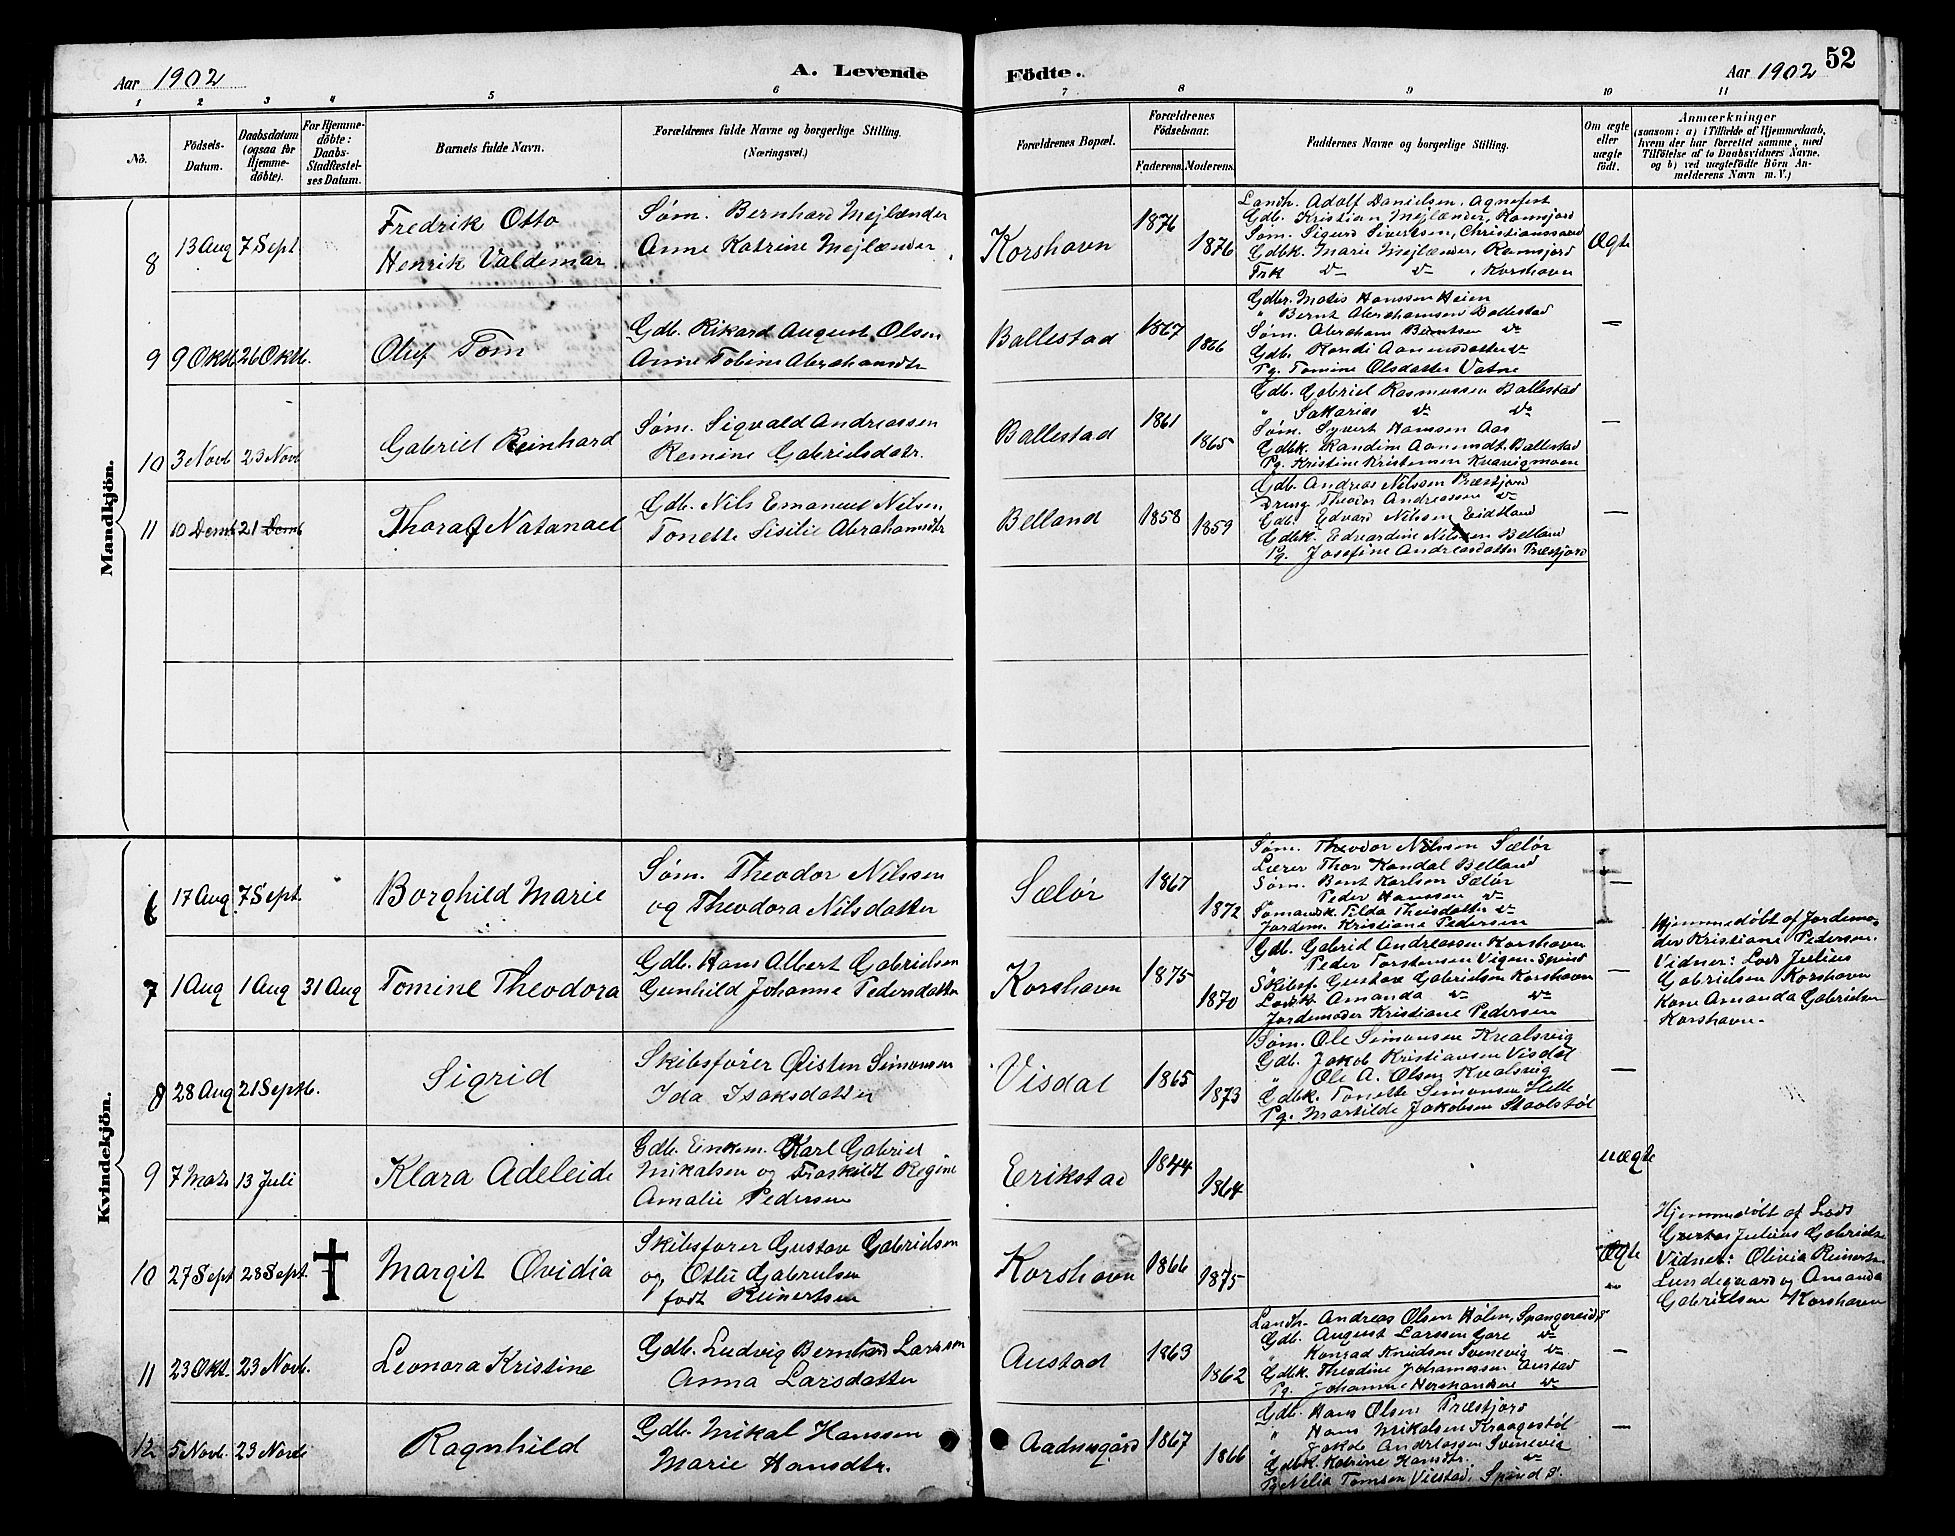 Aar 1902
A. Levende Födte.
Aar 1902 52
1 2 3 4 5 6 7 8 9 10 11
Nö.
Födsels-Datum.
Daabsdatum (ogsaa for Hjemme-döbte).
For Hjemme-döbte: Daabs-Stadfæstel-ses Datum.
Barnets fulde Navn.
Forældrenes fulde Navne og borgerlige Stilling. (Næringsvei.)
Forældrenes Bopæl.
Forældrenes Födselsaar.
Faderens. Moderens.
Faddernes Navne og borgerlige Stilling.
Om ægte eller uægte födt.
Anmærkninger
(saasom: a) i Tilfælde af Hjemmedaab,
hvem der har forrettet samme, med
Tilföielse af to Daabsvidners Navne,
og b) ved uægtefödte Börn An-
melderens Navn m. V.)
Mandkjön.
8 13 Aug 7 Sept.
Fredrik Otto
Henrik Valdemar
Søm. Bernhard Mejlænder
Anne Katrine Mejlænder
Korshavn
1876
1876
Landh. Adolf Danielsen, Agnefest
Gdb. Kristian Mejlænder, Ramsjord
Søm. Sigurd Sivertsen, Christianssand
Gdbk. Marie Mejlænder, Ramsjord
Frk do do, Korshavn
Ægte
9 9 Okt. 26 Okt.
Oluf Tom
Gdb. Rikard August Olsen
Anne Tobine Abrahamsdtr
Ballestad
1867
1866
Gdbr. Matis Hanssen Heien
" Bernt Abrahamsen Ballestad
Søm. Abraham Berntsen do
Gdb. Randi Aanensdatter do
Pg. Tomine Olsdatter Vatne
—
10 3 Novb 23 Novb
Gabriel Reinhard
Søm. Sigvald Andreassen
Remine Gabrielsdatr.
Ballestad
1861
1865
Gdb. Gabriel Rasmussen Ballestad
" Sakarias do do
Søm. Syvert Hanssen Aas
Gdbk. Randine Aanensdt. Ballestad
Pg. Kristine Kristensen Kvavigmoen
—
11 10 Demb 21 Demb
Thoralf Natanael
Gdb. Nils Emanuel Nilsen
Tonette Sisilie Abrahamsdtr
Belland
1858
1859
Gdb. Andreas Nilssen Præstjord
Dreng Theodor Andreassen do
Gdb. Edvard Nilssen Eidsland
Gdbk. Edvardine Nilssen Belland
Pg. Josefine Andreasdatter Præstjord
—
Kvindekjön.
6 17 Aug 7 Sept.
Borghild Marie
Søm. Theodor Nilssen
og Theodora Nilsdatter
Sælør
1867
1872
Søm. Theodor Nilssen Sælør
Lærer Thor Kandal Belland
Søm. Bent Karlsen Sælør
Peder Hanssen do
Sømandsk. Tilda Theisdatter do
Jordem. Kristiane Pedersen
—
7 1 Aug 1 Aug 31 Aug
Tomine Theodora
Gdb. Hans Albert Gabrielsen
Gunhild Johanne Pedersdatter
Korshavn
1875
1870
Gdb. Gabriel Andreassen Korshavn
" Peder Torstensen Vigen Spind
Skibsf. Gustav Gabrielsen Korshavn
Lodsk. Amanda do do
Jordemoder Kristiane Pedersen
—
Hjemmedøbt af Jordemo-
der Kristiane Pedersen.
Vidner: Lods Julius
Gabrielsen Korshavn
Kone Amanda Gabrielsen
Korshavn.
8 28 Aug 21 Septb.
Sigrid
Skibsfører Øisten Simonsen
Ida Isaksdatter
Visdal
1865
1873
Søm. Ole Simonsen Kvalsvig
Gdb. Jakob Kristiansen Visdal
" Ole A. Olsen Kvalsvig
Gdbk. Tonette Simonsen Helle
Pg. Martilde Jakobsen Staalstøl
—
9 7 Mars 13 Juli
Klara Adeleide
Gdb. Enkem. Karl Gabriel
Mikalsen og Fraskildt Regine
Amalie Pedersen
Eerikstad
1844
1864
uægte
10 27 Sept 28 Sept.
Margit Ovidia
Skibsfører Gustav Gabrielsen
og Otlie Gabrielsen
født Reinertsen
Korshavn
1866
1875
Ægte
Hjemmedøbt af Lods
Julius Gabrielsen
Vidner: Olivia Reinertsen
Lundegaard og Amanda
Gabrielsen Korshavn
11 23 Okt. 23 Novb.
Leonora Kristine
Gdb. Ludvig Bernhard Larssen
Anna Larsdatter
Austad
1863
1862
Landh. Andreas Olsen Holen, Spangereid
Gdb. August Larssen Gare do
" Konrad Knudsen Svenevig do
Gdbk. Theodine Johannessen Austad
Pg. Johanne Hermansen do
—
12 5 Novb. 23 Novb
Ragnhild
Gdb. Mikal Hanssen
Marie Hansdtr.
Aadnegård
1867
1866
Gdb. Hans Olsen Præstjord
" Hans Mikalsen Kraagestøl
" Jakob Andreassen Svenevig
Gdbk. Katrine Hansdtr. do
Pg Nelia Tomsen Viestad, Spind S.
—